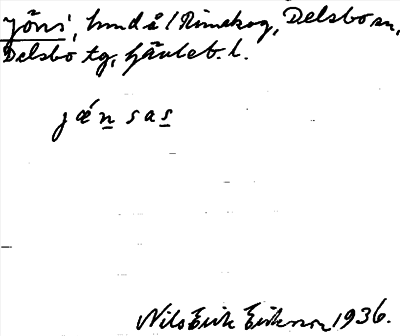 Jöns, hmd å l Rimskog, Delsbo sn,
Delsbo tg, Gävleb. l.
jǽn sas
Nils Erik Erikson 1936.